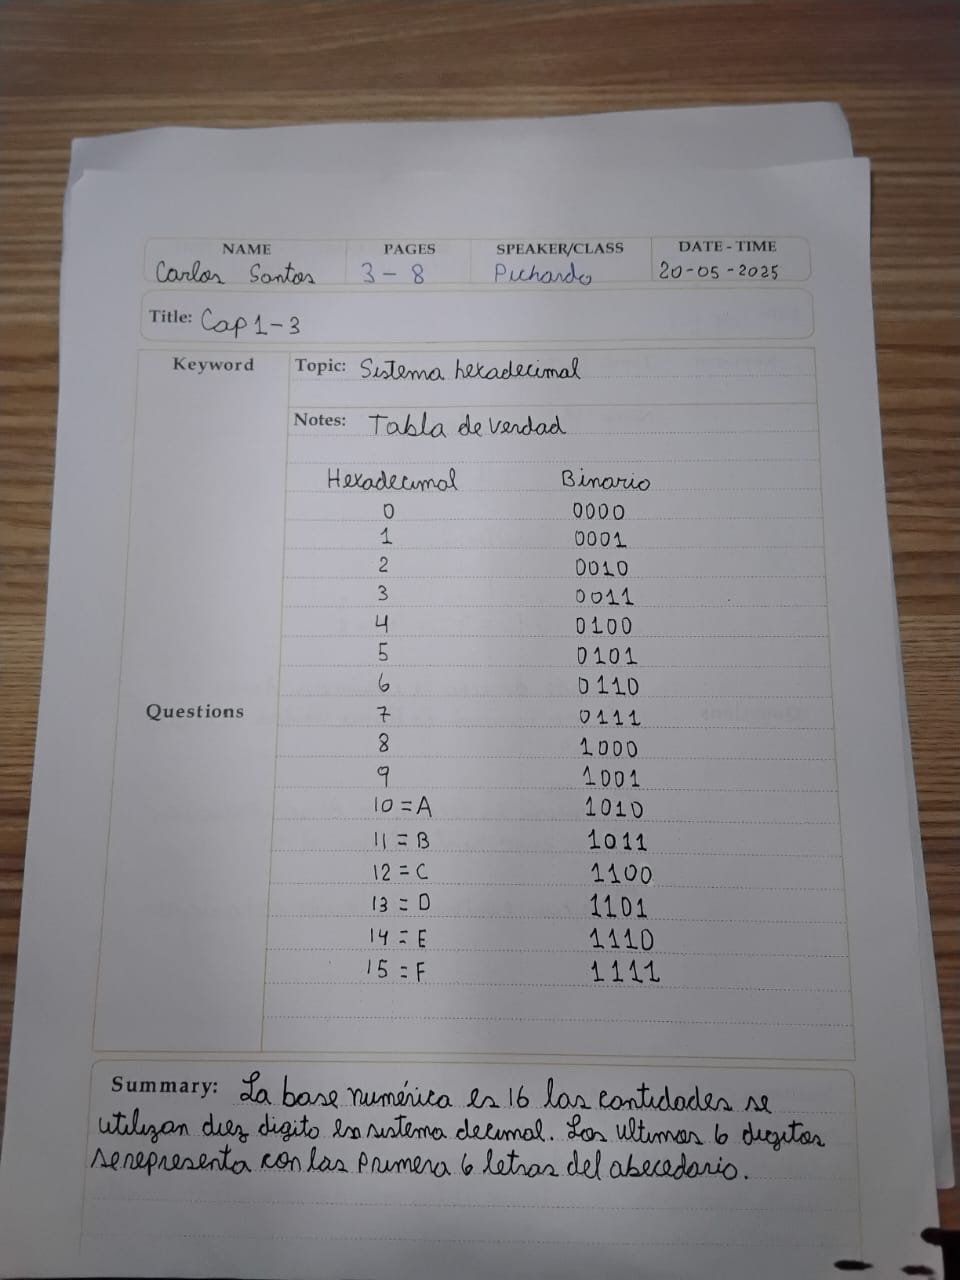 NAME PAGES SPEAKER/CLASS DATE - TIME
Carlos Santos 3 - 8 Pichardo 20-05-2025
Title: Cap 1-3
Keyword Topic: Sistema hexadecimal
Notes: Tabla de verdad
Hexadecimal Binario
0 0000
1 0001
2 0010
3 0011
4 0100
5 0101
6 0110
Questions 7 0111
8 1000
9 1001
10 = A 1010
11 = B 1011
12 = C 1100
13 = D 1101
14 = E 1110
15 = F 1111
Summary: La base numérica es 16 las cantidades se
utilizan diez digito en sistema decimal. Los ultimos 6 digitos
se representa con las primera 6 letras del abecedario.